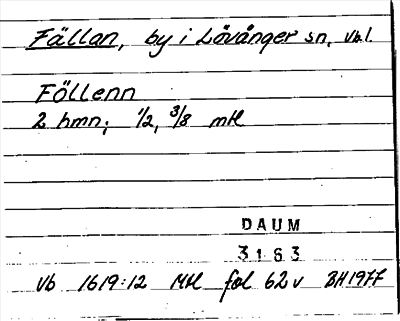 Fällan, by i Lövånger sn, Vbl.
Föllenn
2 hmn; 1/2, 3/8 mtl
DAUM
3163
Vb 1619:12 Mtl fol 62v BH1977